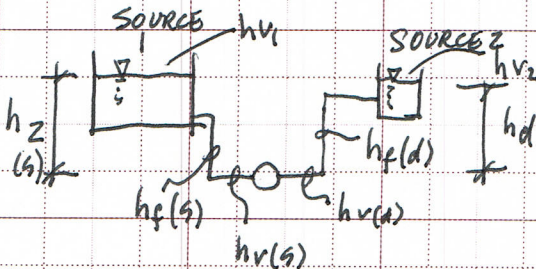 SOURCE
hv₁
SOURCE 2
hv₂
hz
(s)
hd
hf(s)
hf(d)
hv(s)
hv(d)